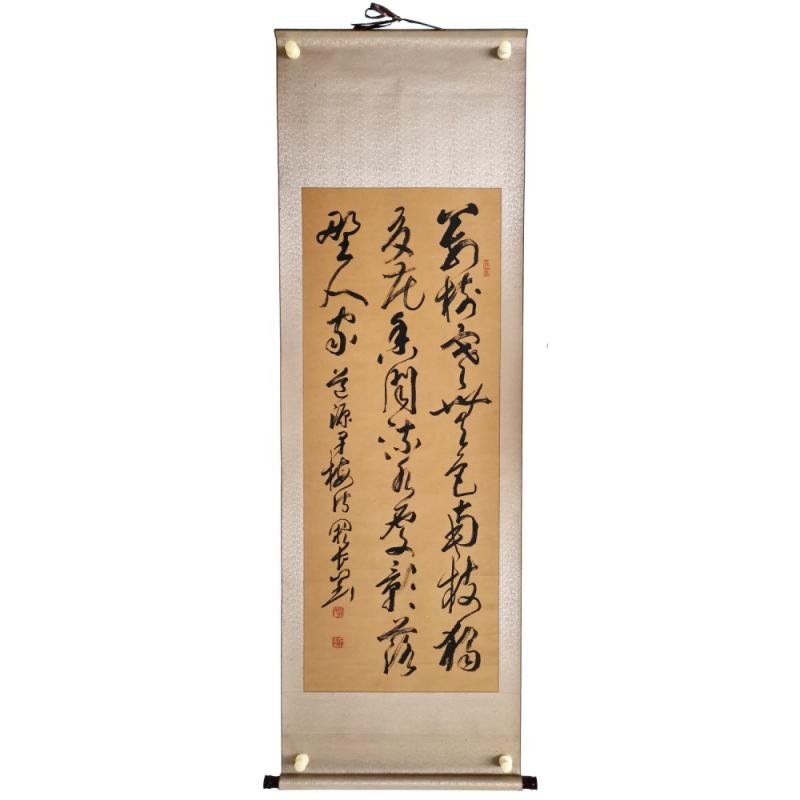 萬樹寒無色南枝獨
有花香聞流水處影落
野人家 道源早梅詩